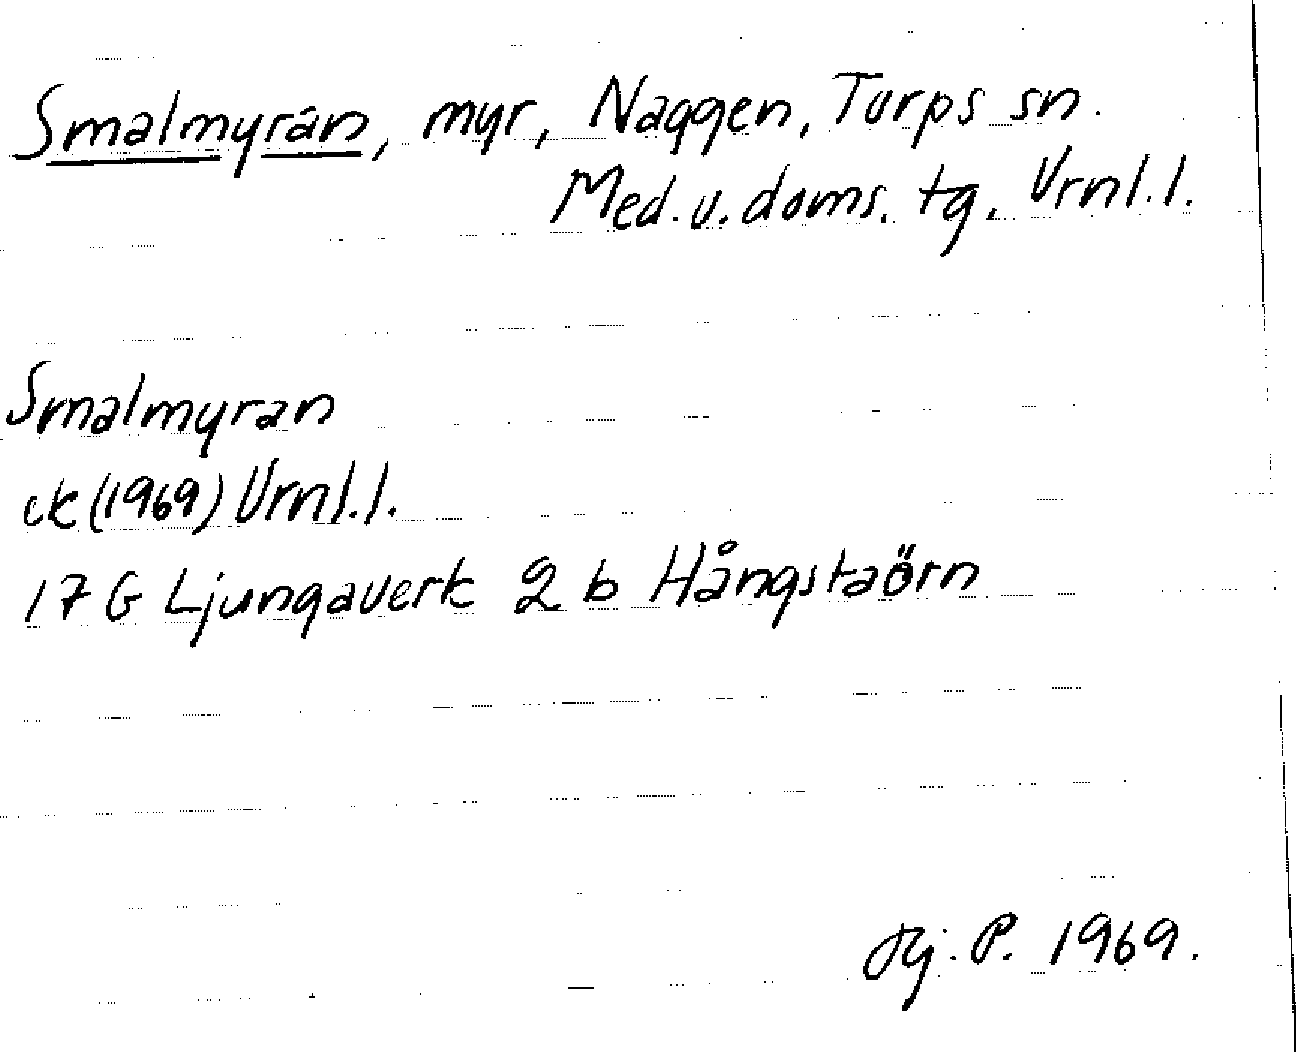 Smalmyran, myr, Naggen, Torps sn.
Med. v. doms. tg, Vrnl. l.
Smalmyran
ek (1969) Vrnl. l.
17 G Ljungaverk 2 b Hångstaörn
Hj. P. 1969.